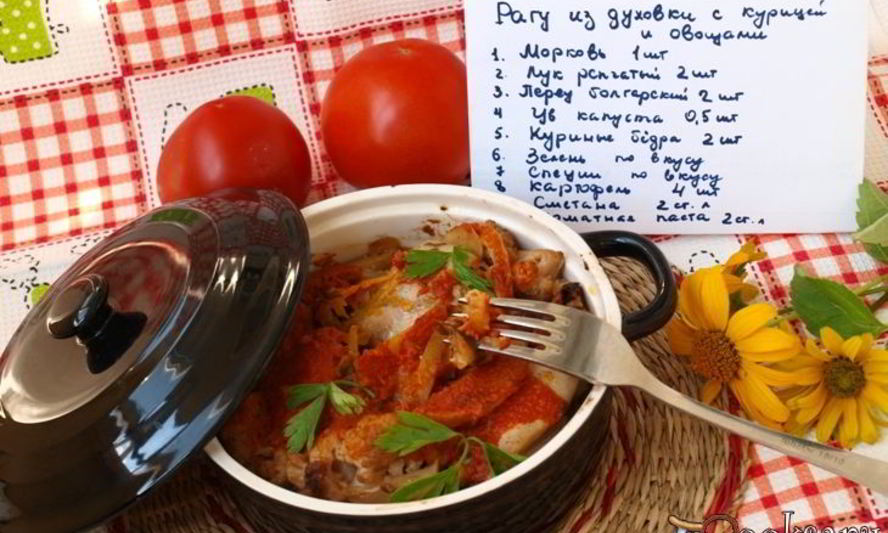 Рагу из духовки с курицей
и овощами
1. Морковь 1 шт
2. Лук репчатый 2 шт
3. Перец болгарский 2 шт
4 Цв капуста 0,5 шт
5 Куриные бедра 2 шт
6. Зелень по вкусу
7 Специи по вкусу
8 Картофель 4 шт
Сметана 2 ст. л
паста 2 ст. л
18/10